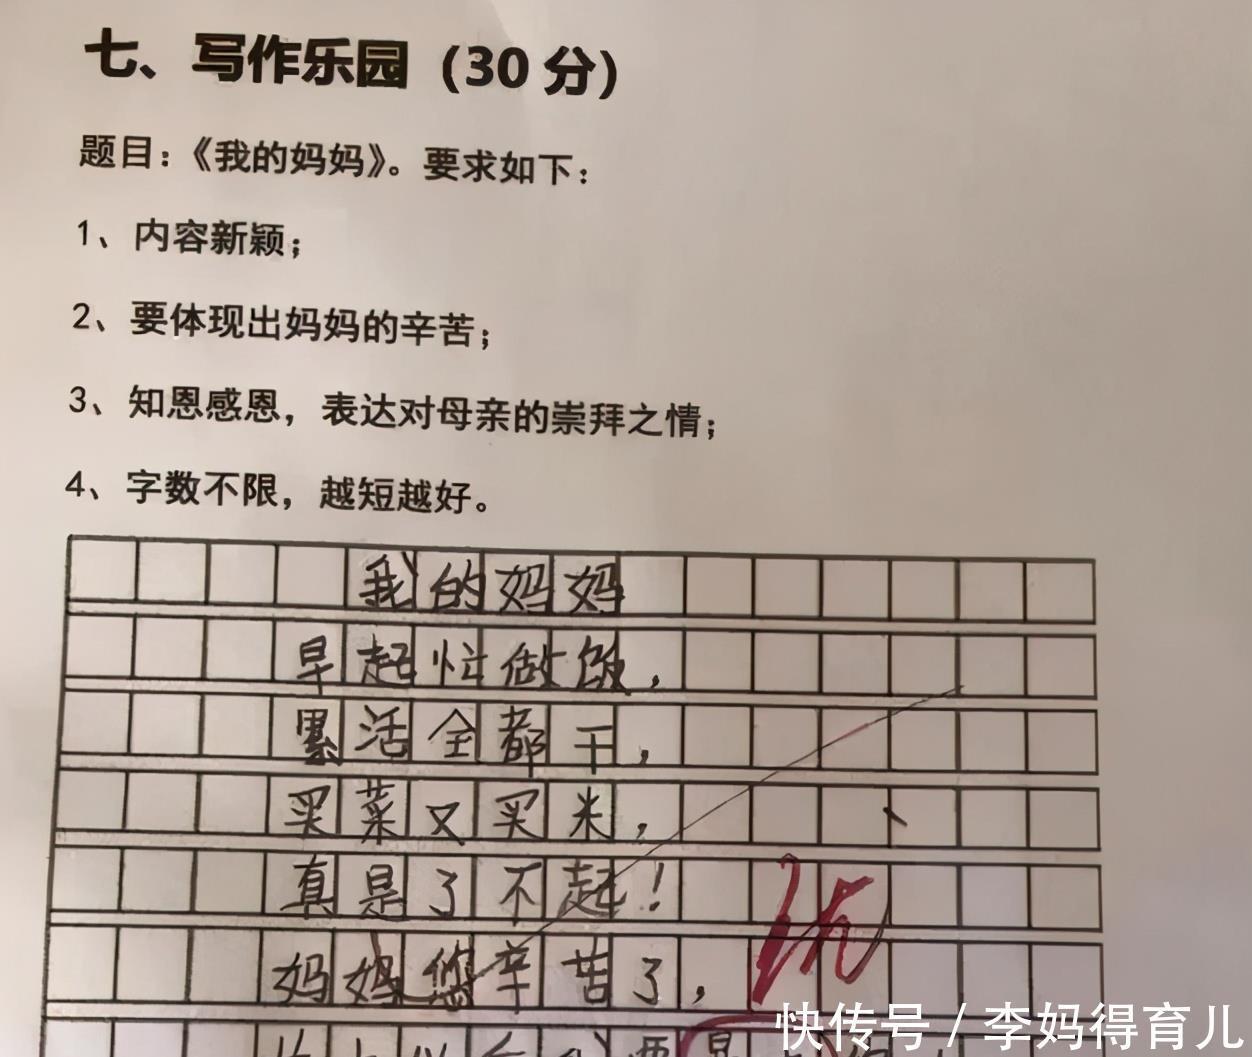 七、写作乐园（30分）
题目：《我的妈妈》。要求如下：
1、内容新颖；
2、要体现出妈妈的辛苦；
3、知恩感恩，表达对母亲的崇拜之情；
4、字数不限，越短越好。
我的妈妈
早起忙做饭，
累活全都干，
买菜又买米，
真是了不起！
妈妈您辛苦了，
快传号 / 李妈得育儿